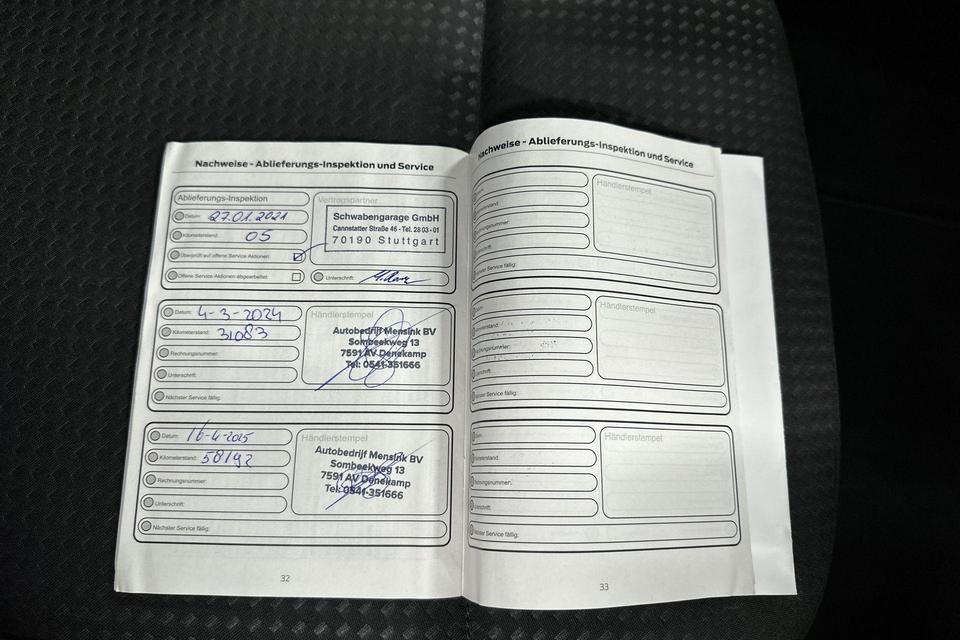 Nachweise - Ablieferungs-Inspektion und Service
Ablieferungs-Inspektion
Datum: 27.01.2021
Kilometerstand: 05
Überprüft auf offene Service Aktionen:
Offene Service Aktionen abgearbeitet:
Vertragspartner
Schwabengarage GmbH
Cannstatter Straße 46 - Tel. 28 03 - 01
70190 Stuttgart
Unterschrift:
Datum: 4-3-2024
Kilometerstand: 31083
Rechnungsnummer:
Unterschrift:
Nächster Service fällig:
Händlerstempel
Autobedrijf Mensink BV
Sombeekweg 13
7591 AV Denekamp
Tel: 0541-351666
Datum: 16-4-2025
Kilometerstand: 58192
Rechnungsnummer:
Unterschrift:
Nächster Service fällig:
Händlerstempel
Autobedrijf Mensink BV
Sombeekweg 13
7591 AV Denekamp
Tel: 0541-351666
32
Nachweise - Ablieferungs-Inspektion und Service
Händlerstempel
Service fällig:
Händlerstempel
Service fällig:
Händlerstempel
Service fällig:
33